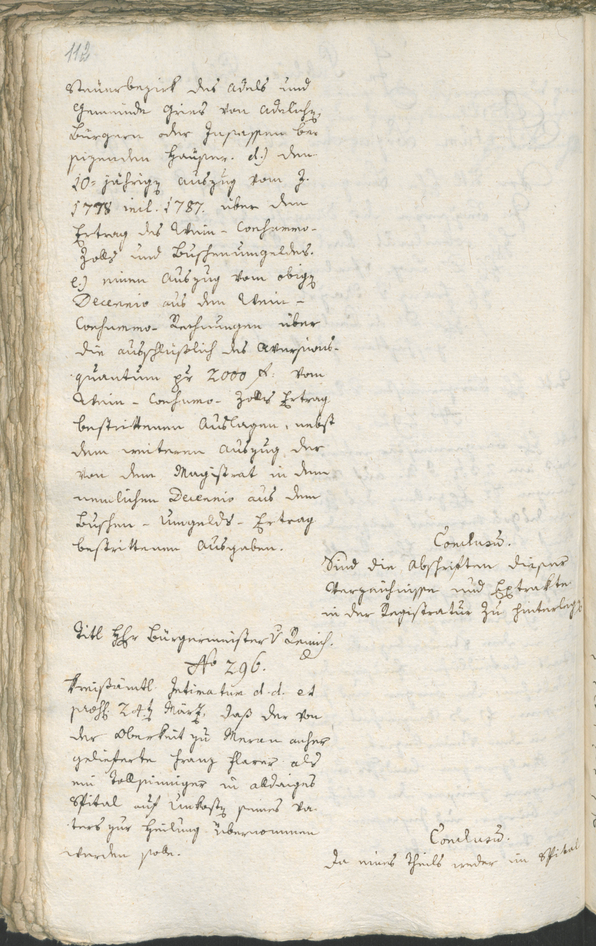 112
Steuerbezirk des Adels und
Gemeinde Gries von Adelichen,
Bürgern oder Insassen be-
sizenden Häuser. d.) den
10- jährigen Auszug vom J.
1778 incl. 1787. über den
Ertrag des Wein- Consummo-
Zolls und Buschenumgeldes.
e.) einen Auszug vom obigen
Decennio aus den Wein-
Consummo- Rechnungen über
die ausschlüßlich des Aversions-
quantum pr 2000 f. vom
Wein- Consumo- Zolls Ertrag
bestrittenen Auslagen, nebst
dem weiteren Auszug der
von dem Magistrat in dem
nemlichen Decennio aus dem
Buschen- Umgelds- Ertrag
bestrittenen Ausgaben.
Conclusum.
Sind die Abschriften dieser
Verzeichnisse und Extrakte
in der Registratur zu hinterlegen
Titl Hr Bürgermeister
No 296.
Kreisämtl. Intimatum d. d. et
präs. 24ten März, daß der von
der Oberkeit zu Meran anher
gelieferte Franz als
ein Tollsinniger in alldaiges
Spital auf Unkosten seines Va-
ters zur Heilung übernommen
werden solle.
Conclusum.
Da eines Theils weder im Spital